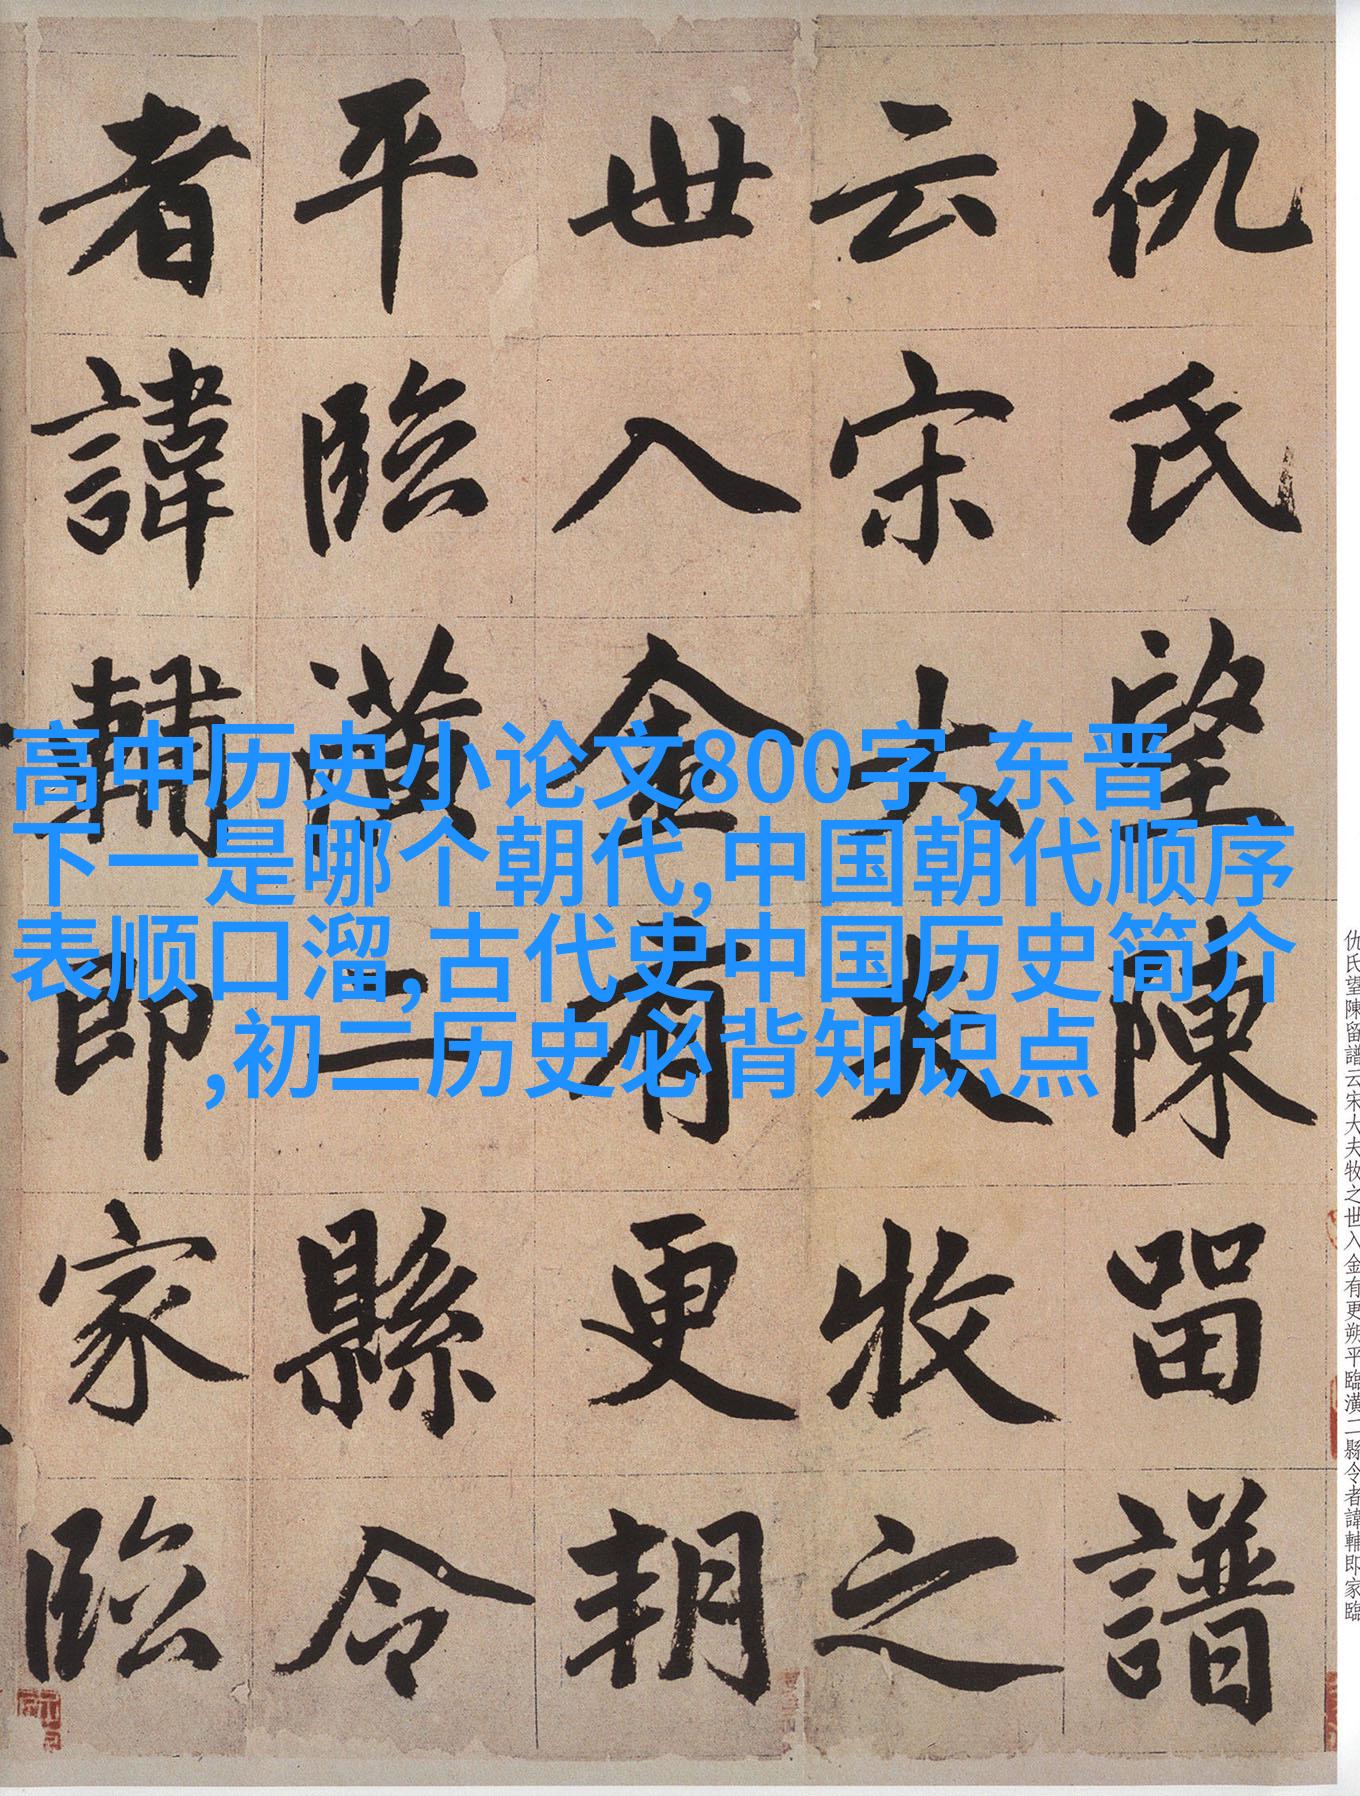 仇氏望陳留譜
云宋大夫牧之
世入金有更朔
平臨潢二縣令
者諱輔即家臨
高中历史小论文800字,东晋
下一是哪个朝代,中国朝代顺序
表顺口溜,古代史中国历史简介
,初二历史必背知识点
仇氏望陳留譜云宋大夫牧之世入金有更朔平臨潢二縣令者諱輔即家臨